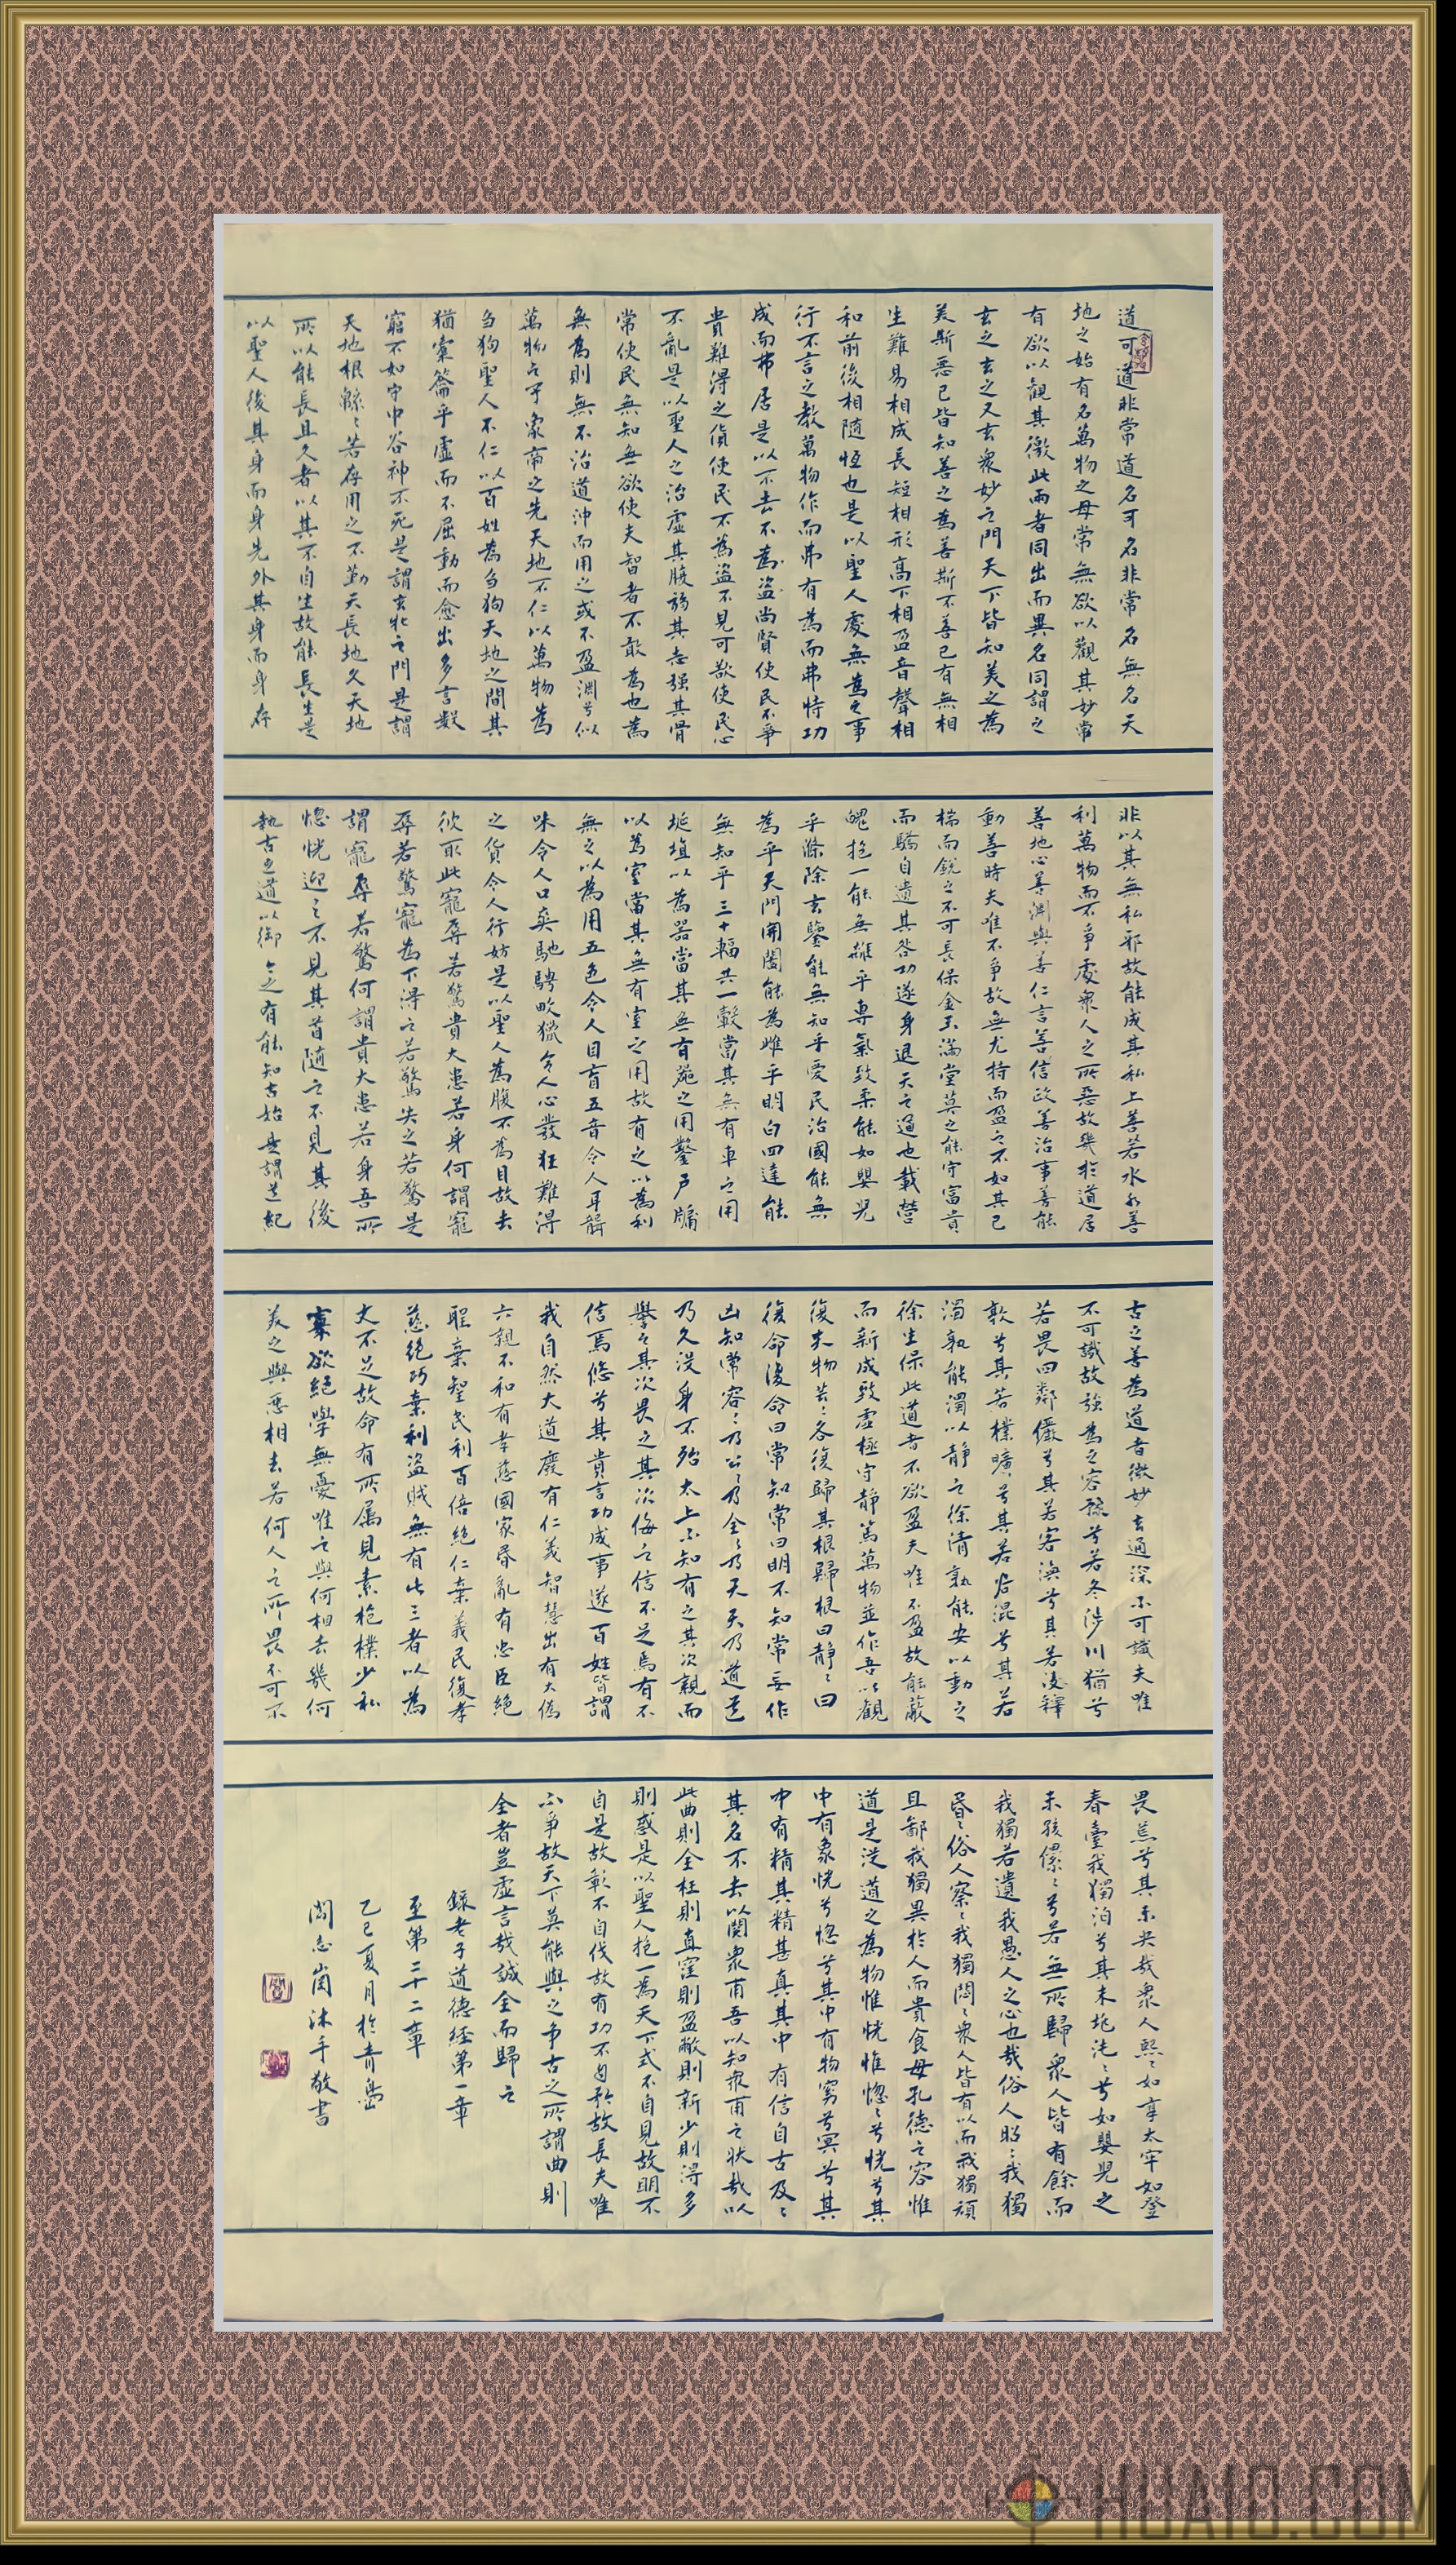 道可道非常道名可名非常名無名天
地之始有名萬物之母常無欲以觀其妙常
有欲以觀其徼此兩者同出而異名同謂之
玄之玄之又玄衆妙之門天下皆知美之為
美斯惡已皆知善之為善斯不善已有無相
生難易相成長短相形高下相盈音聲相
和前後相隨恆也是以聖人處無為之事
行不言之教萬物作而弗有為而弗恃功
成而弗居是以不去不為盜尚賢使民不爭
貴難得之貨使民不為盜不見可欲使民心
不亂是以聖人之治虛其腹弱其志强其骨
常使民無知無欲使夫智者不敢為也為
無為則無不治道沖而用之或不盈淵兮似
萬物之象帝之先天地不仁以萬物為
芻狗聖人不仁以百姓為芻狗天地之間其
猶橐籥乎虛而不屈動而愈出多言數
窮不如守中谷神不死是謂玄牝之門是謂
天地根緜〻若存用之不勤天長地久天地
所以能長且久者以其不自生故能長生是
以聖人後其身而身先外其身而身存
非以其無私邪故能成其私上善若水水善
利萬物而不爭處衆人之所惡故幾於道居
善地心善淵與善仁言善信政善治事善能
動善時夫唯不爭故無尤持而盈之不如其已
揣而銳之不可長保金玉滿堂莫之能守富貴
而驕自遺其咎功遂身退天之道也載營
魄抱一能無離乎專氣致柔能如嬰兒
乎滌除玄鑒能無知乎愛民治國能無
為乎天門開闔能為雌乎明白四達能
無知乎三十輻共一轂當其無有車之用
埏埴以為器當其無有器之用鑿戶牖
以為室當其無有室之用故有之以為利
無之以為用五色令人目盲五音令人耳聾
味令人口爽馳騁畋獵令人心發狂難得
之貨令人行妨是以聖人為腹不為目故去
彼取此寵辱若驚貴大患若身何謂寵
辱若驚寵為下得之若驚失之若驚是
謂寵辱若驚何謂貴大患若身吾所
惚恍迎之不見其首隨之不見其後
執古之道以御今之有能知古始是謂道紀
古之善為道者微妙玄通深不可識夫唯
不可識故強為之容豫兮若冬涉川猶兮
若畏四鄰儼兮其若客渙兮其若凌釋
敦兮其若樸曠兮其若谷混兮其若
濁孰能濁以靜之徐清孰能安以動之
徐生保此道者不欲盈夫唯不盈故能蔽
而新成致虛極守靜篤萬物並作吾以觀
復夫物芸〻各復歸其根歸根曰靜〻曰
復命復命曰常知常曰明不知常妄作
凶知常容〻乃公〻乃全〻乃天天乃道道
乃久沒身不殆太上不知有之其次親而
譽之其次畏之其次侮之信不足焉有不
信焉悠兮其貴言功成事遂百姓皆謂
我自然大道廢有仁義智慧出有大偽
六親不和有孝慈國家昏亂有忠臣絕
聖棄智民利百倍絕仁棄義民復孝
慈絕巧棄利盜賊無有此三者以為
文不足故命有所屬見素抱樸少私
寡欲絕學無憂唯之與何相去幾何
美之與惡相去若何人之所畏不可不
畏荒兮其未央哉衆人熙〻如享太牢如登
春臺我獨泊兮其未兆沌〻兮如嬰兒之
未孩儽〻兮若無所歸衆人皆有餘而
我獨若遺我愚人之心也哉俗人昭〻我獨
昏〻俗人察〻我獨悶〻衆人皆有以而我獨頑
且鄙我獨異於人而貴食母孔德之容惟
道是從道之為物惟恍惟惚〻兮恍兮其
中有象恍兮惚兮其中有物窈兮冥兮其
中有精其精甚真其中有信自古及〻
其名不去以閱衆甫吾以知衆甫之狀哉以
此曲則全枉則直窪則盈敝則新少則得多
則惑是以聖人抱一為天下式不自見故明不
自是故彰不自伐故有功不自矜故長夫唯
不爭故天下莫能與之爭古之所謂曲則
全者豈虛言哉誠全而歸之
錄老子道德經第一章
至第二十二章
乙巳夏月於青島
閻志崗沐手敬書
HUA10.COM